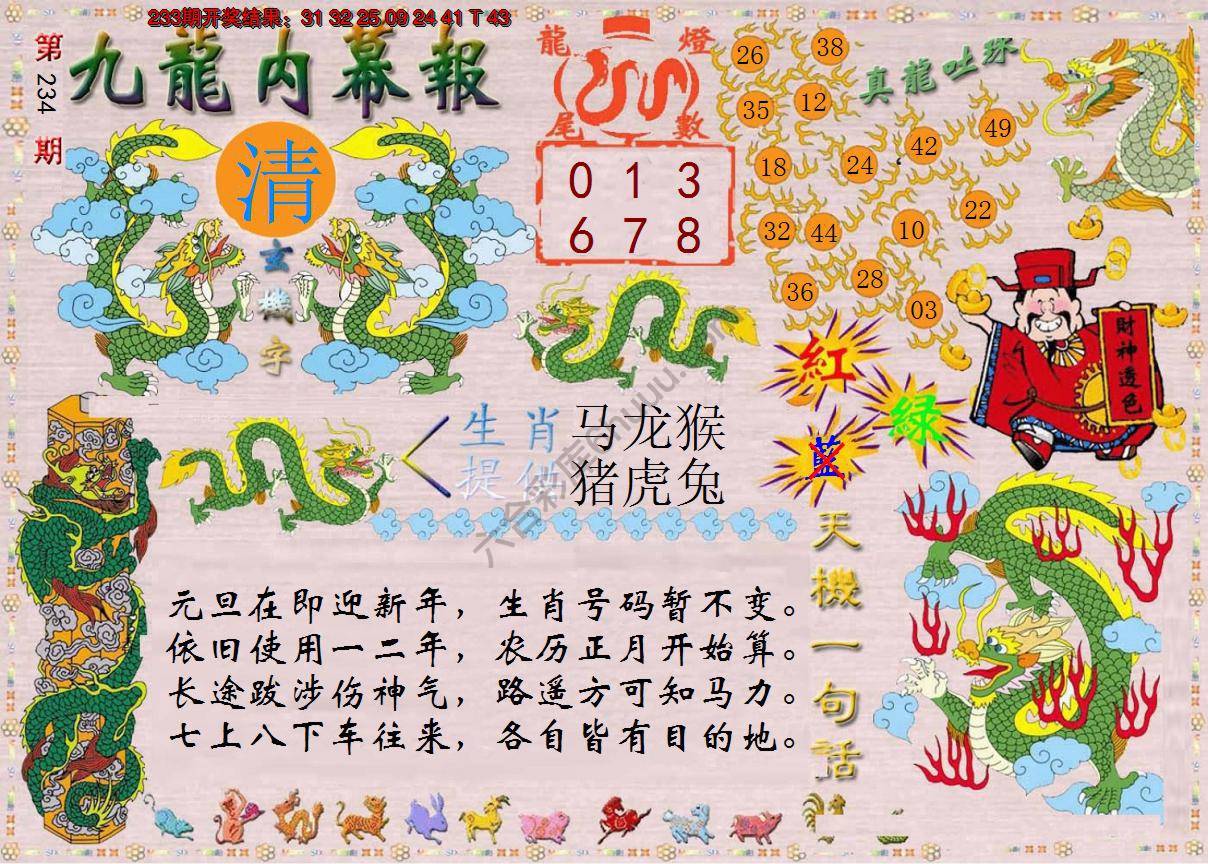 233期开奖结果：31 32 25 09 24 41 T 43
第234期
九龍内幕報
清
玄機字
龍燈尾數
0 1 3
6 7 8
真龍吐珠
26 38
35 12
18 24 42 49
32 44 10 22
36 28 03
財神透色
紅
綠
藍
生肖提供
马龙猴
猪虎兔
天機一句話
元旦在即迎新年，生肖号码暂不变。
依旧使用一二年，农历正月开始算。
长途跋涉伤神气，路遥方可知马力。
七上八下车往来，各自皆有目的地。